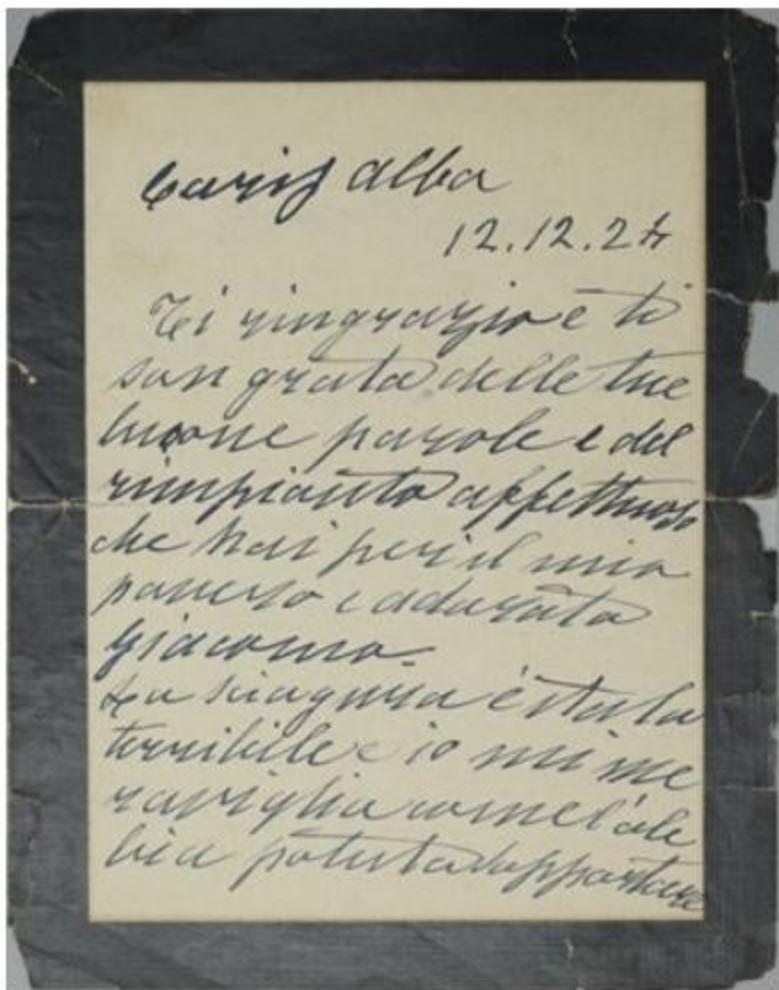 Cariss Alba
12.12.24
Ti ringrazio e ti
son grata delle tue
buone parole e del
rimpianto affettuoso
che hai per il mio
povero e adorato
Giacomo.
La sciagura è stata
terribile e io mi me
raviglio come l'ab
bia potuta sopportare